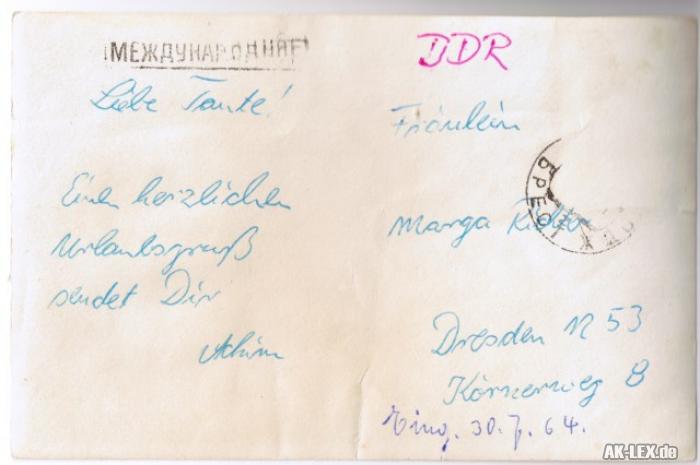 МЕЖДУНАРОДНОЕ
DDR
Liebe Tante!
Einen herzlichen
Urlaubsgruß
sendet Dir
Achim
Fräulein
Marga
Dresden N 53
Körnerweg 8
Eing. 30.7.64.
БРЕС
AK-LEX.de